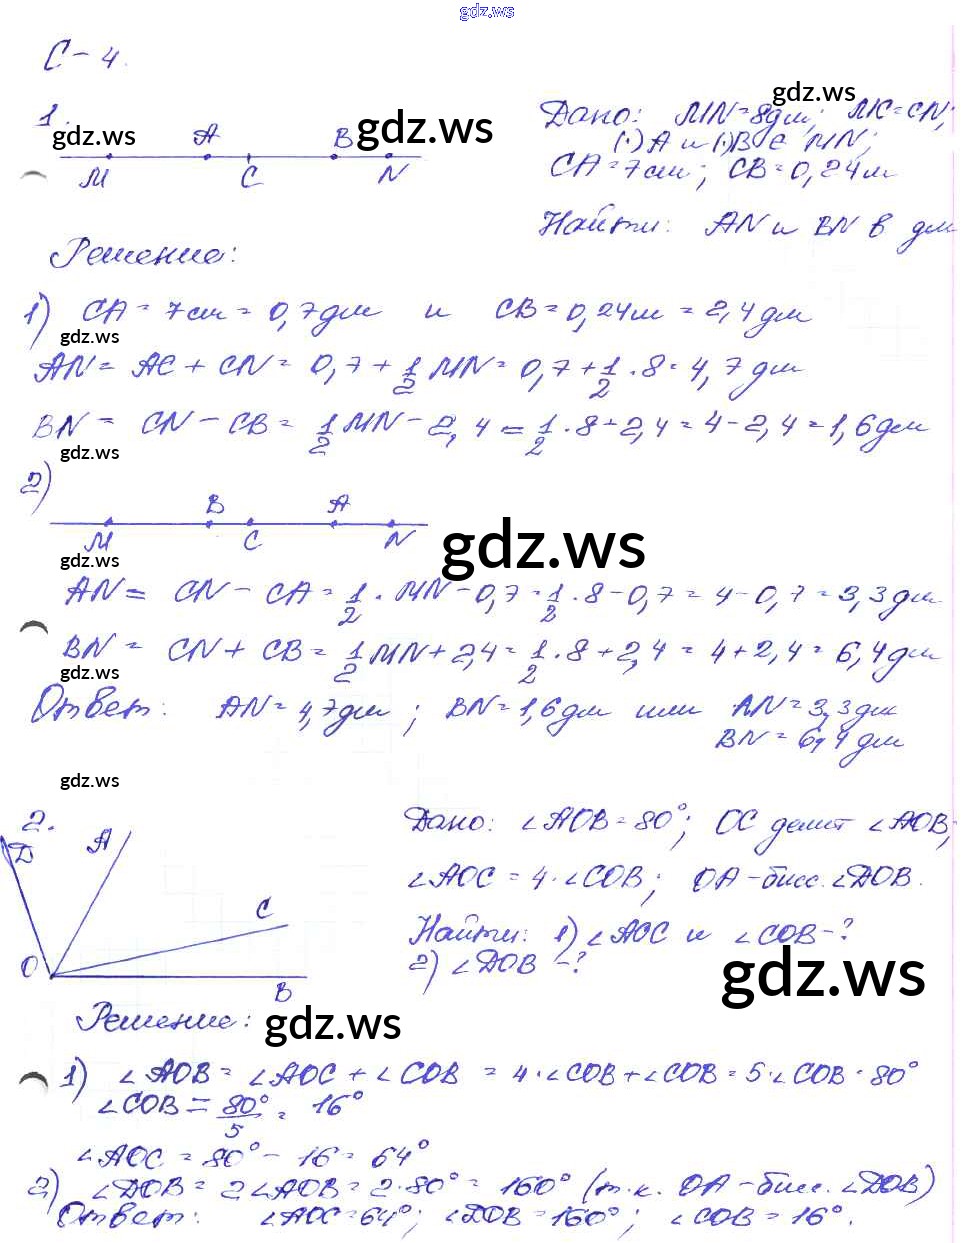 gdz.ws
С-4.
1.
gdz.ws
A
gdz.ws
B
M
C
N
gdz.ws
Дано: MN=8дм; MC=CN;
(·)A и (·)B ∈ MN;
CA=7см; CB=0,24м
Найти: AN и BN в дм
Решение:
1) CA=7см=0,7дм и CB=0,24м=2,4дм
gdz.ws
AN = AC + CN = 0,7 + 1/2 MN = 0,7 + 1/2 · 8 = 4,7 дм
BN = CN - CB = 1/2 MN - 2,4 = 1/2 · 8 - 2,4 = 4 - 2,4 = 1,6 дм
gdz.ws
2)
B
A
M
C
N
gdz.ws
gdz.ws
AN = CN - CA = 1/2 · MN - 0,7 = 1/2 · 8 - 0,7 = 4 - 0,7 = 3,3 дм
BN = CN + CB = 1/2 MN + 2,4 = 1/2 · 8 + 2,4 = 4 + 2,4 = 6,4 дм
gdz.ws
Ответ: AN = 4,7дм; BN = 1,6дм или AN = 3,3дм
BN = 6,4 дм
gdz.ws
2.
D
A
C
O
B
Дано: ∠AOB = 80°; OC делит ∠AOB;
∠AOC = 4·∠COB; OA-бисс. ∠DOB.
Найти: 1) ∠AOC и ∠COB-?
2) ∠DOB -?
gdz.ws
Решение:
gdz.ws
1) ∠AOB = ∠AOC + ∠COB = 4·∠COB + ∠COB = 5·∠COB = 80°
∠COB = 80°/5 = 16°
∠AOC = 80° - 16 = 64°
2) ∠DOB = 2∠AOB = 2·80° = 160° (т.к. OA-бисс. ∠DOB)
Ответ: ∠AOC = 64°; ∠DOB = 160°; ∠COB = 16°.